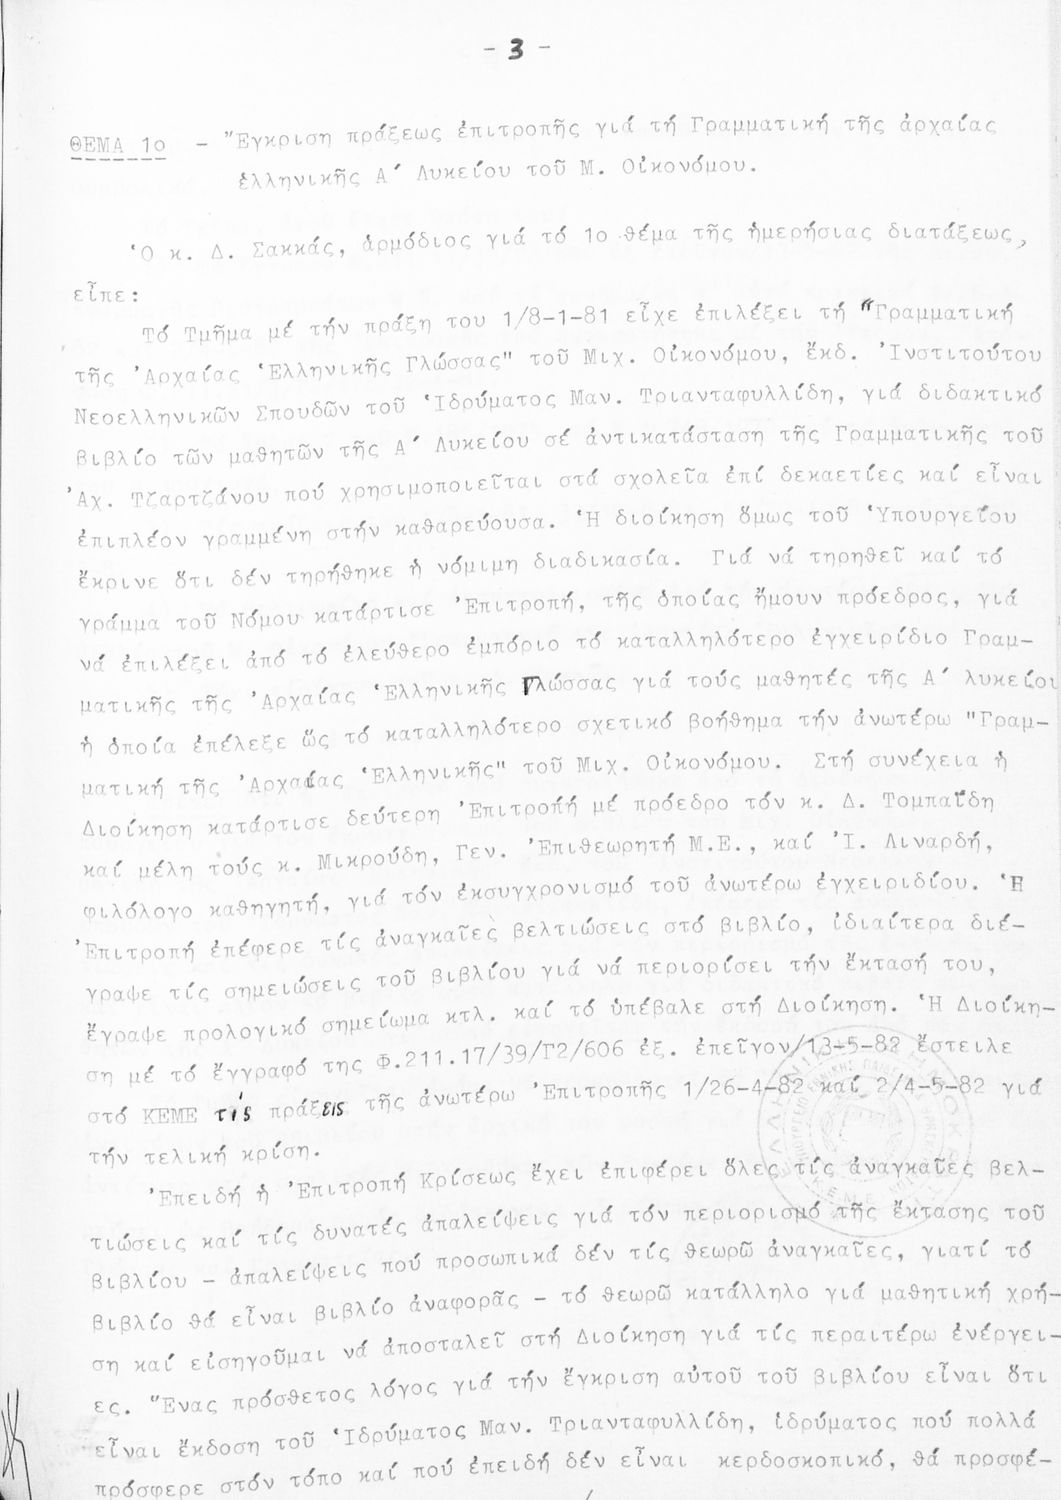 - 3 -
ΘΕΜΑ 1ο - "Εγκριση πράξεως ἐπιτροπῆς γιά τή Γραμματική τῆς ἀρχαίας
ἑλληνικῆς Α΄ Λυκείου τοῦ Μ. Οἰκονόμου.
Ὁ κ. Δ. Σακκάς, ἁρμόδιος γιά τό 1ο θέμα τῆς ἡμερήσιας διατάξεως,
εἶπε:
Τό Τμῆμα μέ τήν πράξη του 1/8-1-81 εἶχε ἐπιλέξει τή "Γραμματική
τῆς Ἀρχαίας Ἑλληνικῆς Γλώσσας" τοῦ Μιχ. Οἰκονόμου, ἔκδ. Ἰνστιτούτου
Νεοελληνικῶν Σπουδῶν τοῦ Ἱδρύματος Μαν. Τριανταφυλλίδη, γιά διδακτικό
βιβλίο τῶν μαθητῶν τῆς Α΄ Λυκείου σέ ἀντικατάσταση τῆς Γραμματικῆς τοῦ
Ἀχ. Τζαρτζάνου πού χρησιμοποιεῖται στά σχολεῖα ἐπί δεκαετίες καί εἶναι
ἐπιπλέον γραμμένη στήν καθαρεύουσα. Ἡ διοίκηση ὅμως τοῦ Ὑπουργείου
ἔκρινε ὅτι δέν τηρήθηκε ἡ νόμιμη διαδικασία. Γιά νά τηρηθεῖ καί τό
γράμμα τοῦ Νόμου κατάρτισε Ἐπιτροπή, τῆς ὁποίας ἤμουν πρόεδρος, γιά
νά ἐπιλέξει ἀπό τό ἐλεύθερο ἐμπόριο τό καταλληλότερο ἐγχειρίδιο Γραμ-
ματικῆς τῆς Ἀρχαίας Ἑλληνικῆς Γλώσσας γιά τούς μαθητές τῆς Α΄ λυκείου
ἡ ὁποία ἐπέλεξε ὥς τό καταλληλότερο σχετικό βοήθημα τήν ἀνωτέρω "Γραμ-
ματική τῆς Ἀρχαίας Ἑλληνικῆς" τοῦ Μιχ. Οἰκονόμου. Στή συνέχεια ἡ
Διοίκηση κατάρτισε δεύτερη Ἐπιτροπή μέ πρόεδρο τόν κ. Δ. Τομπαΐδη
καί μέλη τούς κ. Μικρούδη, Γεν. Ἐπιθεωρητή Μ.Ε., καί Ἰ. Λιναρδή,
φιλόλογο καθηγητή, γιά τόν ἐκσυγχρονισμό τοῦ ἀνωτέρω ἐγχειριδίου. Ἡ
Ἐπιτροπή ἐπέφερε τίς ἀναγκαῖες βελτιώσεις στό βιβλίο, ἰδιαίτερα διέ-
γραψε τίς σημειώσεις τοῦ βιβλίου γιά νά περιορίσει τήν ἔκτασή του,
ἔγραψε προλογικό σημείωμα κτλ. καί τό ὑπέβαλε στή Διοίκηση. Ἡ Διοίκη-
ση μέ τό ἔγγραφό της Φ.211.17/39/Γ2/606 ἐξ. ἐπεῖγον/13-5-82 ἔστειλε
στό ΚΕΜΕ τίς πράξεις τῆς ἀνωτέρω Ἐπιτροπῆς 1/26-4-82 καί 2/4-5-82 γιά
τήν τελική κρίση.
Ἐπειδή ἡ Ἐπιτροπή Κρίσεως ἔχει ἐπιφέρει ὅλες τίς ἀναγκαῖες βελ-
τιώσεις καί τίς δυνατές ἀπαλείψεις γιά τόν περιορισμό τῆς ἔκτασης τοῦ
βιβλίου - ἀπαλείψεις πού προσωπικά δέν τίς θεωρῶ ἀναγκαῖες, γιατί τό
βιβλίο θά εἶναι βιβλίο ἀναφορᾶς - τό θεωρῶ κατάλληλο γιά μαθητική χρή-
ση καί εἰσηγοῦμαι νά ἀποσταλεῖ στή Διοίκηση γιά τίς περαιτέρω ἐνέργει-
ες. Ἕνας πρόσθετος λόγος γιά τήν ἔγκριση αὐτοῦ τοῦ βιβλίου εἶναι ὅτι
εἶναι ἔκδοση τοῦ Ἱδρύματος Μαν. Τριανταφυλλίδη, ἱδρύματος πού πολλά
πρόσφερε στόν τόπο καί πού ἐπειδή δέν εἶναι κερδοσκοπικό, θά προσφέ-